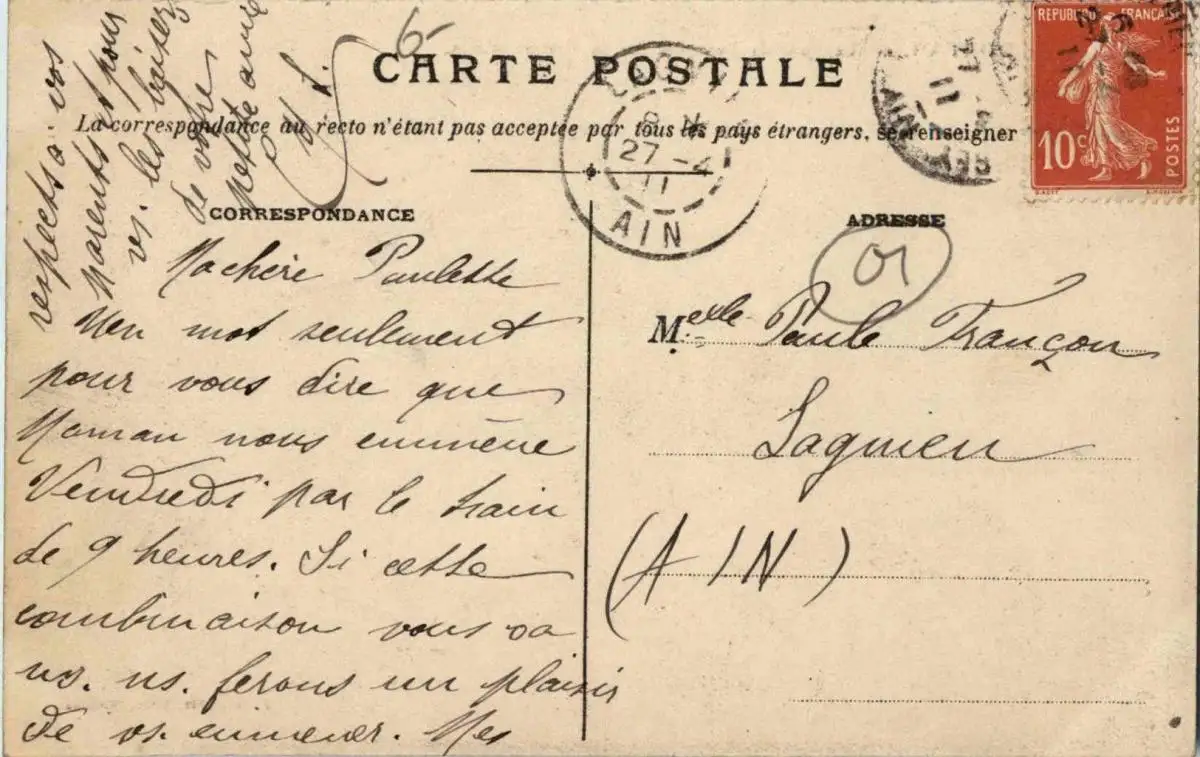 6-
CARTE POSTALE
La correspondance au recto n'étant pas acceptée par tous les pays étrangers, se renseigner
CORRESPONDANCE
Ma chère Paulette
Un mot seulement
pour vous dire que
Maman nous emmène
Vendredi par le train
de 9 heures. Si cette
combinaison vous va
ns. ns. ferons un plaisir
de vs. emmener. Mes
respects à vos
parents et pour
vs. les baisers
de votre
petite amie
ADRESSE
01
Melle Paule Françon
Lagnieu
(AIN)
REPUBLIQUE FRANÇAISE
10c
POSTES
27-4
11
AIN
11
AIN